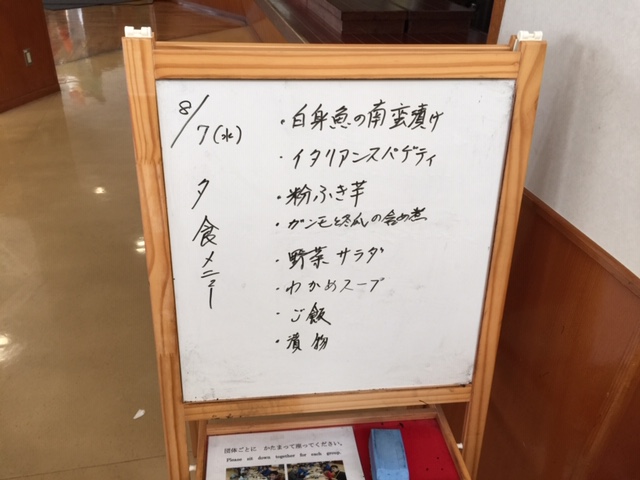 8/7(水)
夕食メニュー
・白身魚の南蛮漬け
・イタリアンスパゲティ
・粉ふき芋
・ガンモと冬瓜の含め煮
・野菜サラダ
・わかめスープ
・ご飯
・漬物
団体ごとに かたまって座ってください。
Please sit down together for each group.